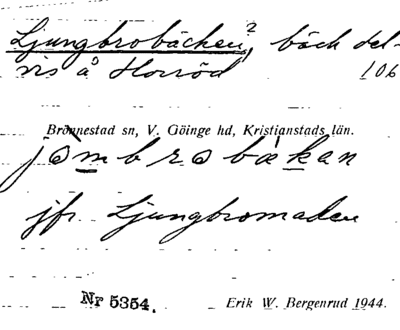 Ljungbrobäcken?, bäck del-
vis å Horröd 106
Brönnestad sn, V. Göinge hd, Kristianstads län.
jfr. Ljungbromaden
Nr 5354. Erik W. Bergenrud 1944.